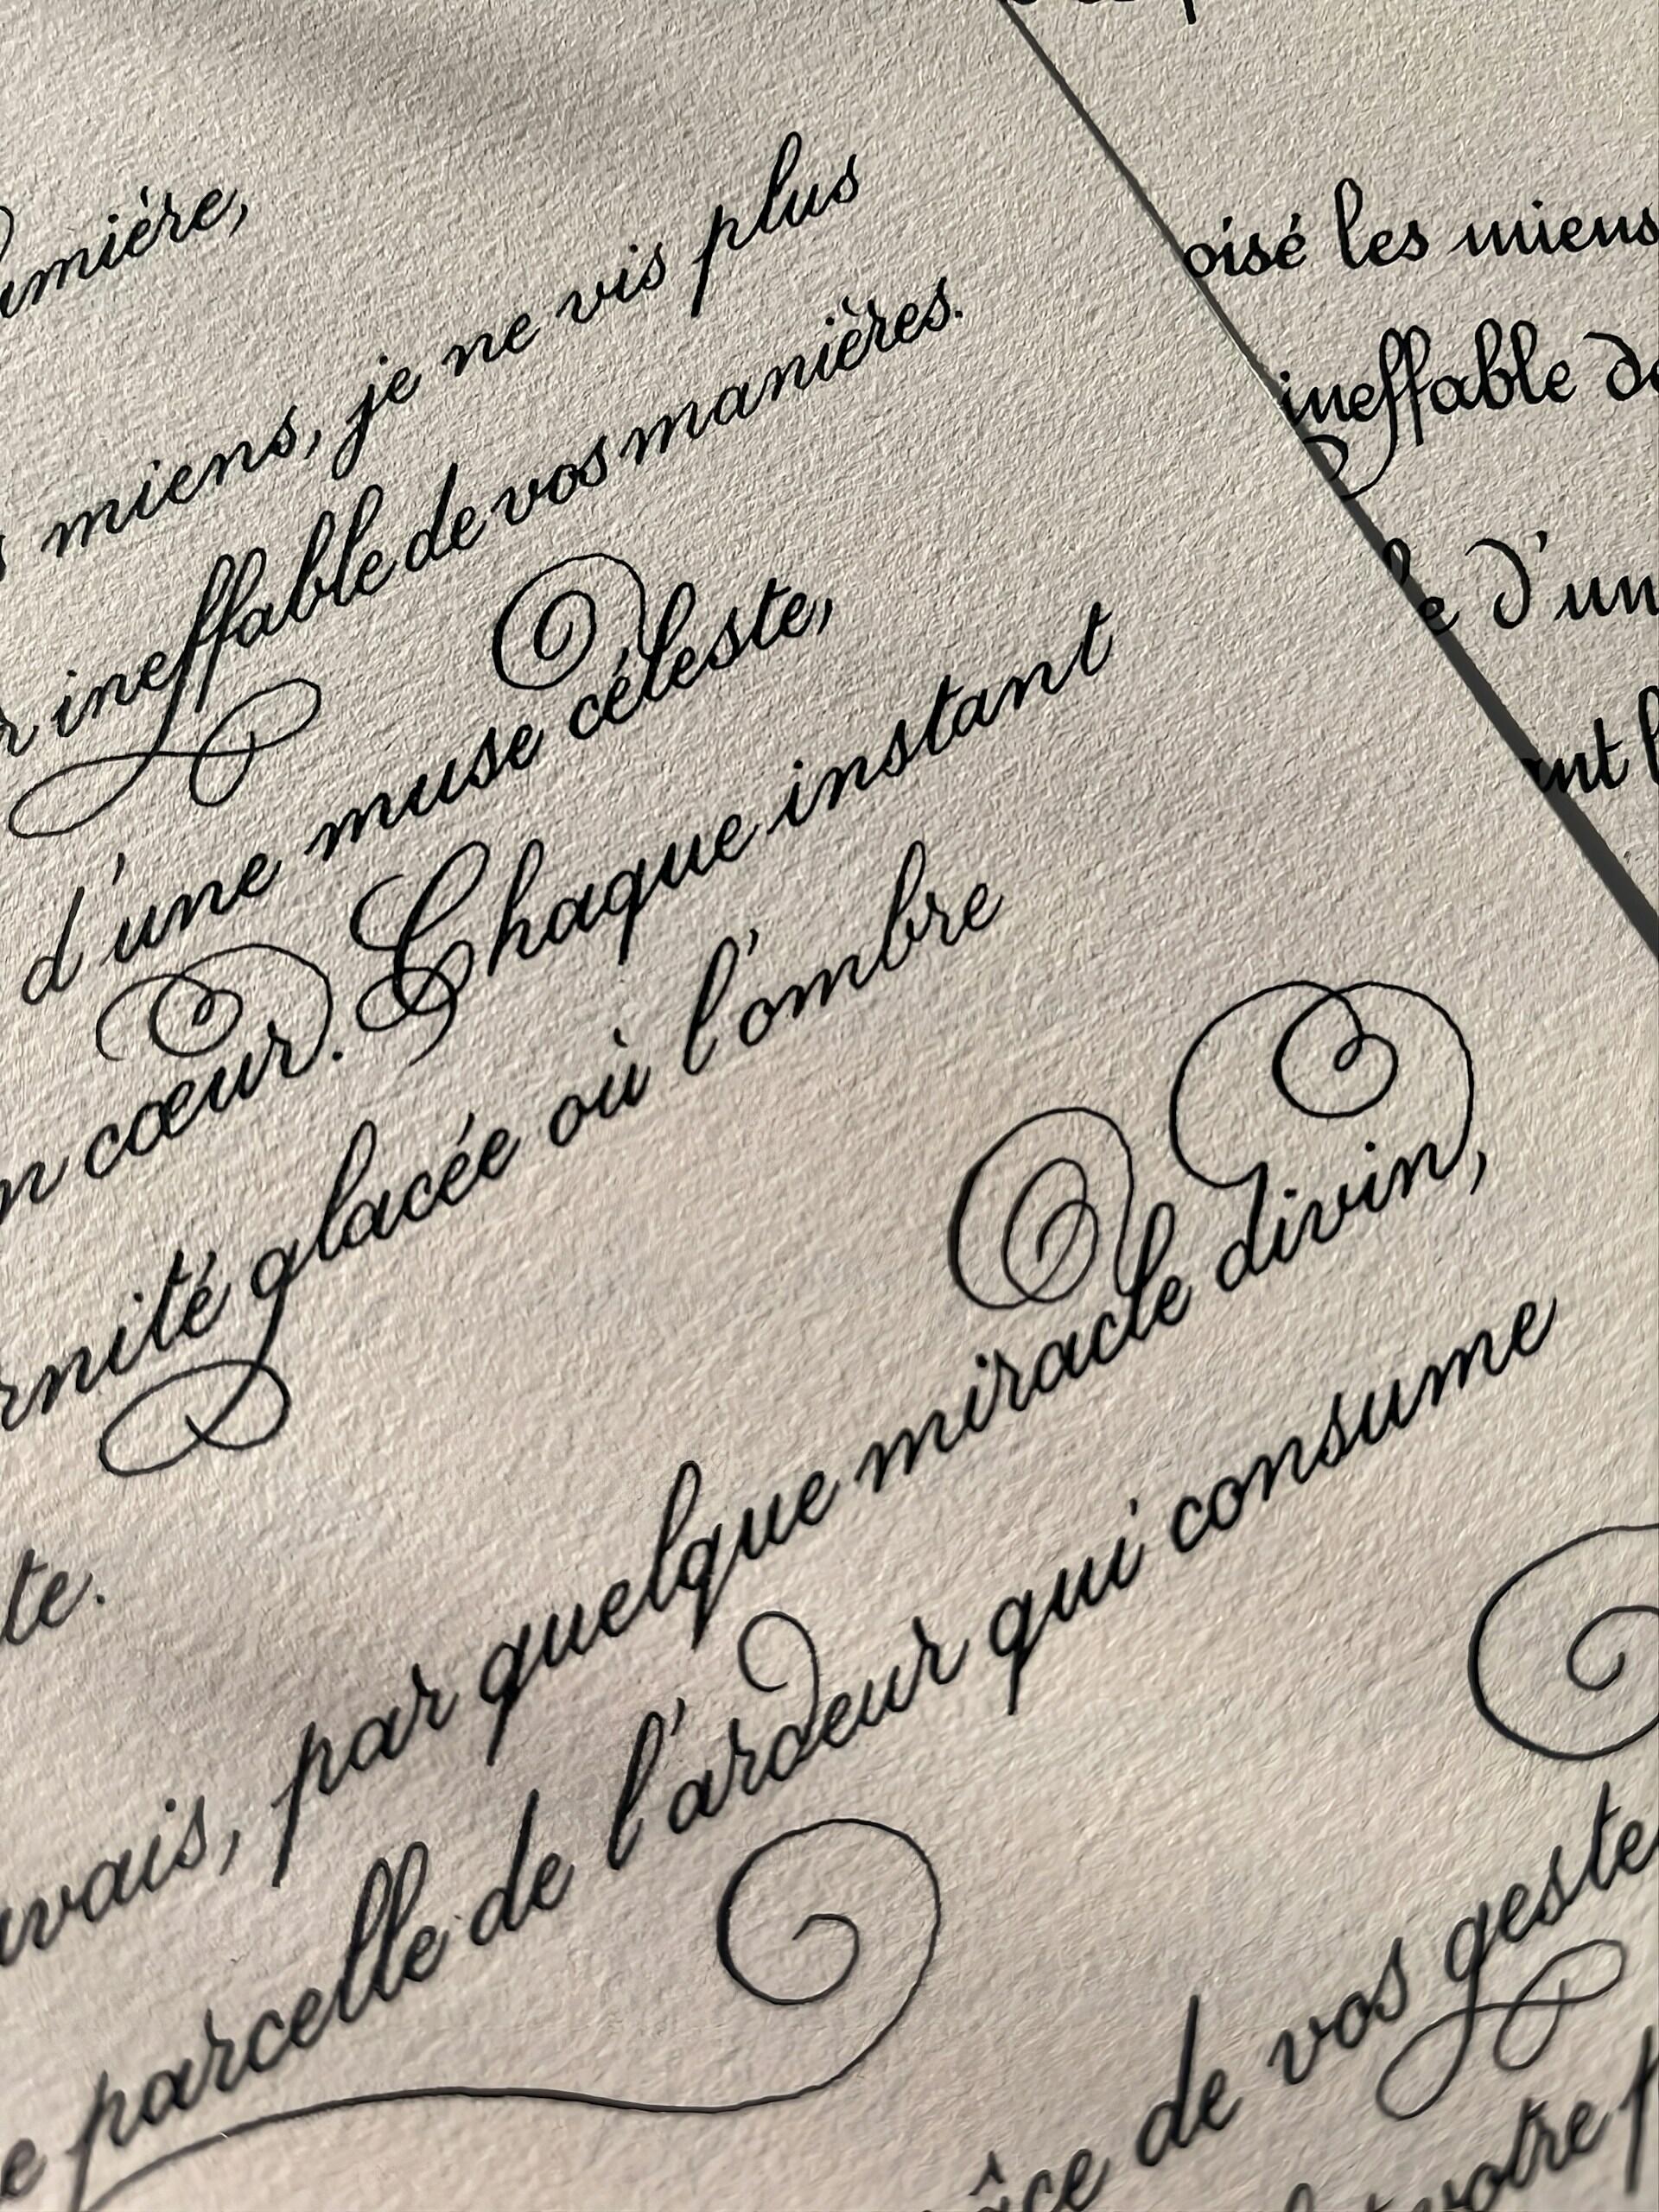 lumière,
miens, je ne vis plus
ineffable de vos manières.
d'une muse céleste,
cœur. Chaque instant
glacée où l'ombre
par quelque miracle divin,
parcelle de l'ardeur qui consume
de vos geste
votre
oisé les miens
ineffable de
d'un